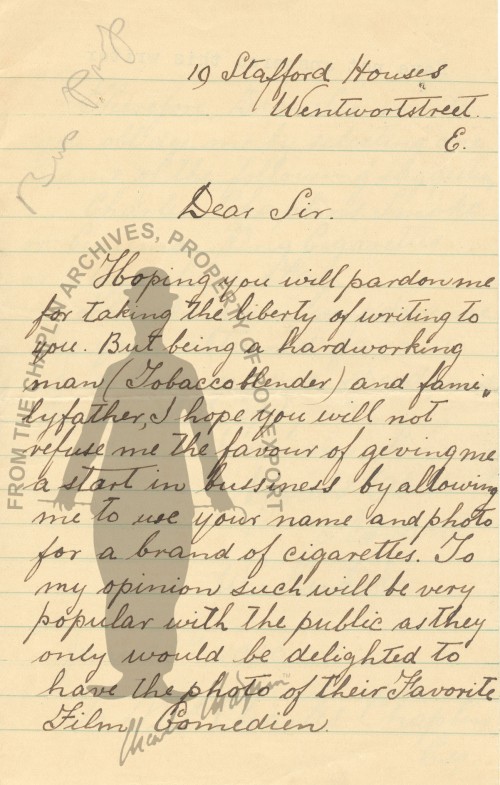 19 Stafford Houses
Wentwortstreet.
E.
Dear Sir.
Hoping you will pardon me
for taking the liberty of writing to
you. But being a hardworking
man (Tobaccoblender) and fami„
lyfather, I hope you will not
refuse me the favour of giving me
a start in bussiness by allowing
me to use your name and photo
for a brand of cigarettes. To
my opinion such will be very
popular with the public as they
only would be delighted to
have the photo of their Favorite
Film Comedien.
FROM THE CHAPLIN ARCHIVES, PROPERTY OF ROY EXPORT